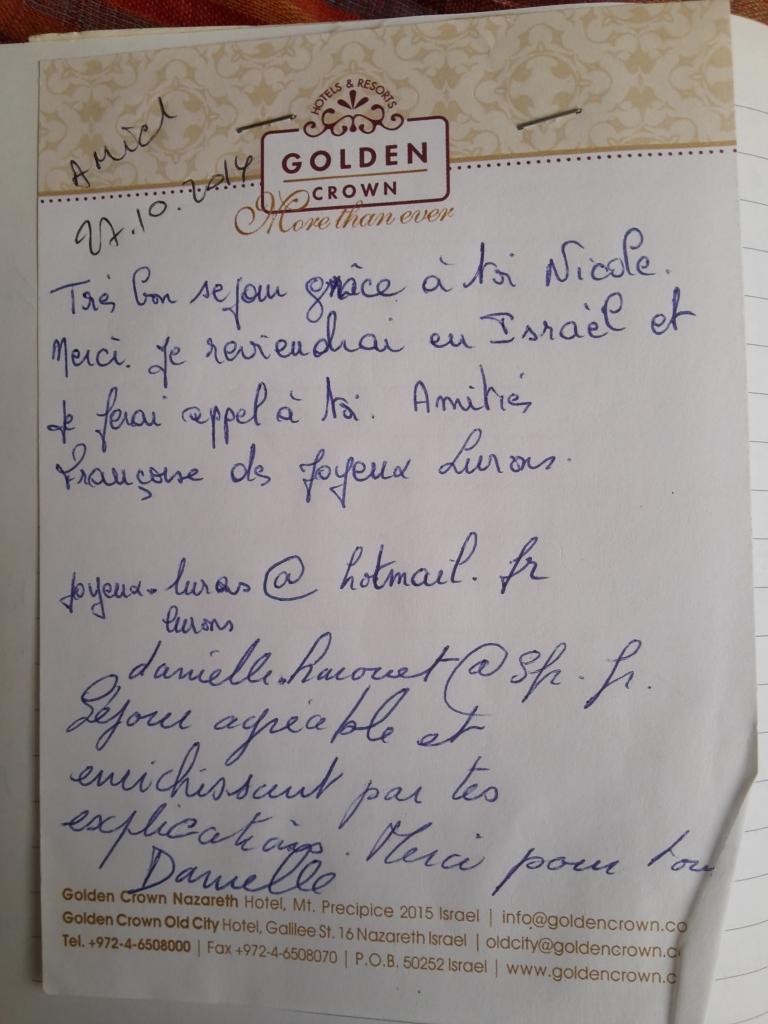 HOTELS & RESORTS
GOLDEN
CROWN
More than ever
Amiel
27.10.2014
Très bon sejour grâce à toi Nicole.
Merci. Je reviendrai en Israël et
Je ferai appel à toi. Amitiés
Françoise des Joyeux Lurons.
joyeux.lurons@hotmail.fr
lurons
@sfr.fr.
Séjour agréable et
enrichissant par tes
explications. Merci pour tout
Danielle
Golden Crown Nazareth Hotel, Mt. Precipice 2015 Israel | info@goldencrown.co
Golden Crown Old City Hotel, Galilee St. 16 Nazareth Israel | oldcity@goldencrown.c
Tel. +972-4-6508000 | Fax +972-4-6508070 | P.O.B. 50252 Israel | www.goldencrown.c